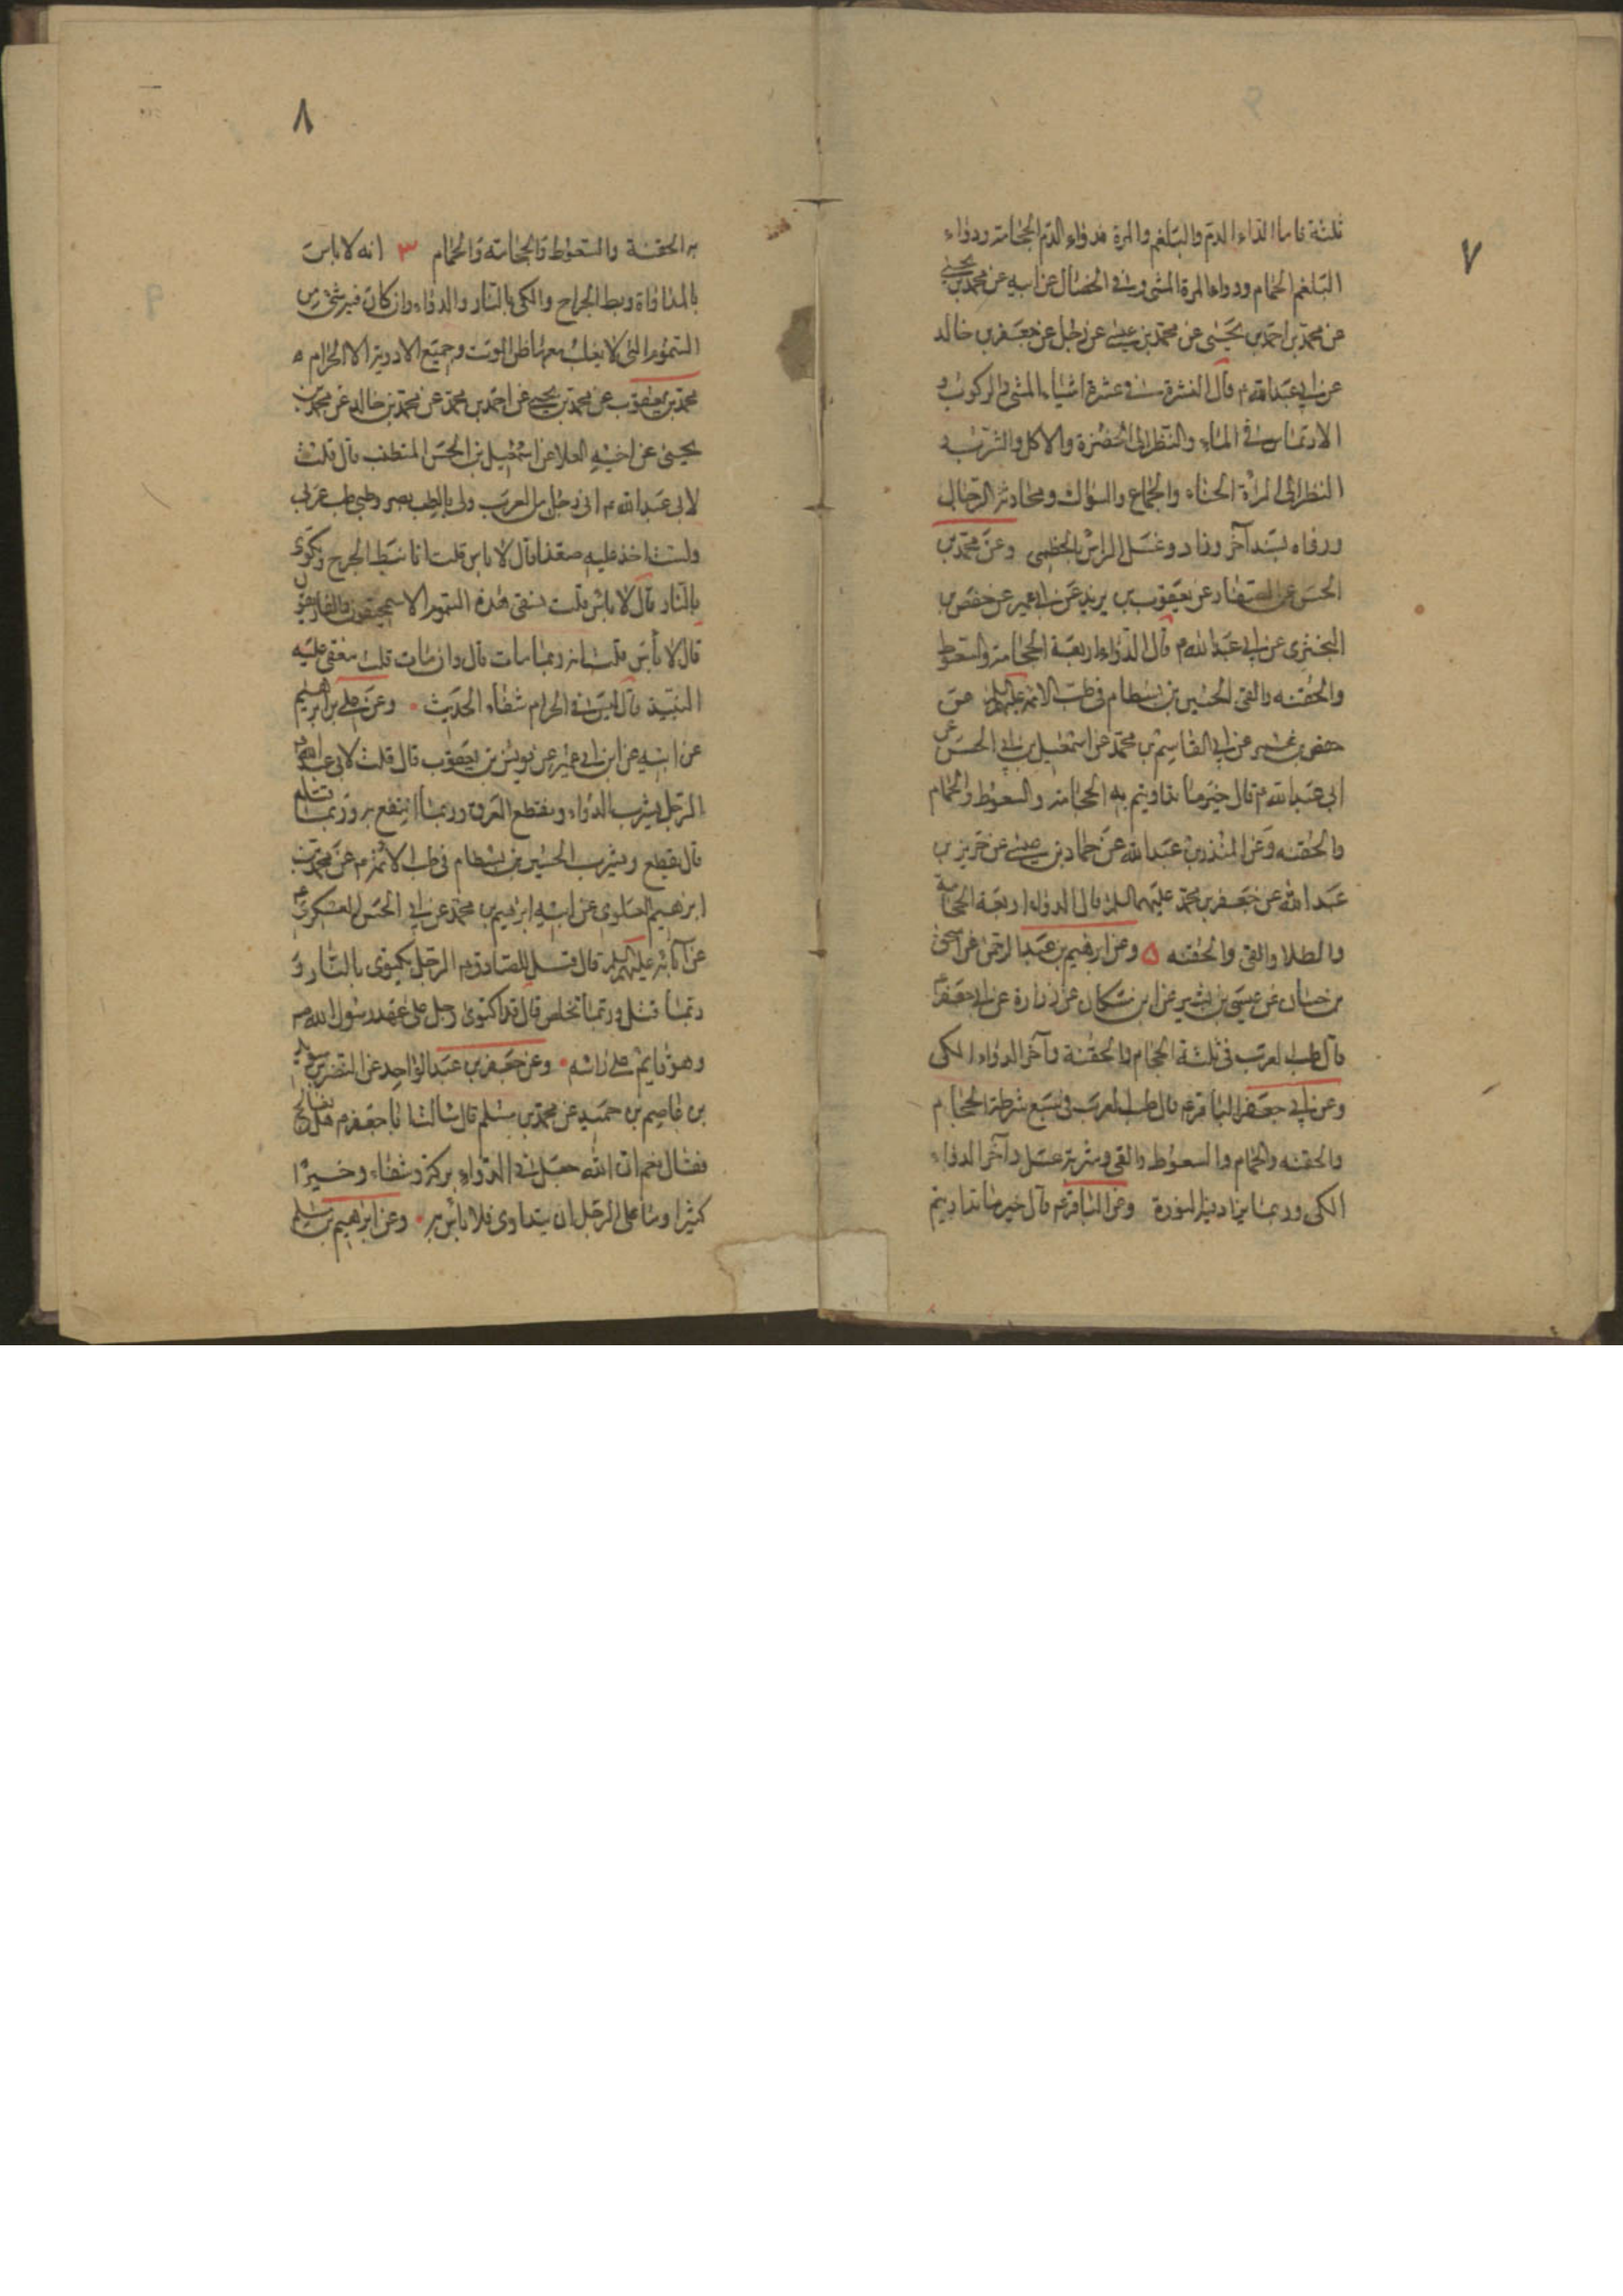 ٧
ثلثة فاما الداء الدم والبلغم والمرة فدواء الدم الحجامة ودواء
البلغم الحمام ودواء المرة المشى وفى الخصال عن ابيه عن محمد بن يحيى
عن محمد بن احمد بن يحيى عن محمد بن عيسى عن رجل عن جعفر بن خالد
عن ابى عبد الله م قال النشرة فى عشرة اشياء المشى والركوب و
الارتماس فى الماء والنظر الى الخضرة والاكل والشرب و
النظر الى المراة الحسناء والجماع والسواك ومحادثة الرجال
ورواه بسند آخر وزاد وغسل الراس بالخطمى وعن محمد بن
الحسن عن الصفار عن يعقوب بن يزيد عن ابن ابى عمير عن حفص بن
البخترى عن ابى عبد الله م قال الدواء اربعة الحجامة والسعوط
والحقنه والقى الحسين بن بسطام فى طب الائمة عليهم السلم عن
حفص بن عمر عن ابى القاسم بن محمد عن اسمعيل بن ابى الحسن عن
ابى عبد الله م قال خير ما تداويتم به الحجامة والسعوط والحمام
والحقنه وعن المنذر بن عبد الله عن حماد بن عيسى عن حريز بن
عبد الله عن جعفر بن محمد عليهما السلم قال الدواء اربعة الحجامة
والطلا والقى والحقنه ٥ وعن ابرهيم بن عبد الرحمن عن اسحق
بن حسان عن عيسى بن بشير عن ابن مسكان عن زرارة عن ابى جعفر م
قال طب العرب فى ثلثة الحجام والحقنة وآخر الدواء الكى
وعن ابى جعفر الباقر م قال طب العرب فى سبع شرطة الحجام
والحقنه والحمام والسعوط والقى وشربة عسل وآخر الدواء
الكى وربما يزاد فيه النورة وعن الباقر م قال خير ما تداويتم
٨
به الحقنة والسعوط والحجامة والحمام ٣ انه لا باس
بالمداواة وبط الجراح والكى بالنار والدواء وان كان فيه شئ من
السموم التى لا يغلب معها ظن الموت وجميع الادوية الا الحرام ه
محمد بن يعقوب عن محمد بن يحيى عن احمد بن محمد عن محمد بن خالد عن محمد بن
يحيى عن اخيه العلا عن اسمعيل بن الحسن المتطبب قال قلت
لابى عبد الله م انى رجل من العرب ولى بالطب بصر وطبى طب عربى
ولست اخذ عليه صفدا قال لا باس قلت انا نبط الجرح ونكوى
بالنار قال لا باس قلت نسقى هذه السموم الاسمحيقون والغاريقون
قال لا باس قلت انه ربما مات قال وان مات قلت نسقى عليه
النبيذ قال ليس فى الحرام شفاء الحديث وعن على بن ابرهيم
عن ابيه عن ابن ابى عمير عن يونس بن يعقوب قال قلت لابى عبد الله م
الرجل يشرب الدواء ويقطع العرق وربما انتفع به وربما قتله
قال يقطع ويشرب الحسين بن بسطام فى طب الائمة م عن محمد بن
ابرهيم العلوى عن ابيه ابرهيم بن محمد عن ابى الحسن العسكرى م
عن آبائه عليهم السلم قال قيل للصادق م الرجل يكتوى بالنار و
ربما قتل وربما تخلص قال قد اكتوى رجل على عهد رسول الله ص
وهو قايم على راسه وعن جعفر بن عبد الواحد عن النضر بن سويد
بن عاصم بن حميد عن محمد بن مسلم قال سالت ابا جعفر م هل يعالج
فقال نعم ان الله جعل فى الدواء بركة وشفاء وخيرا
كثيرا وما على الرجل ان يتداوى فلا باس به وعن ابراهيم بن مسلم